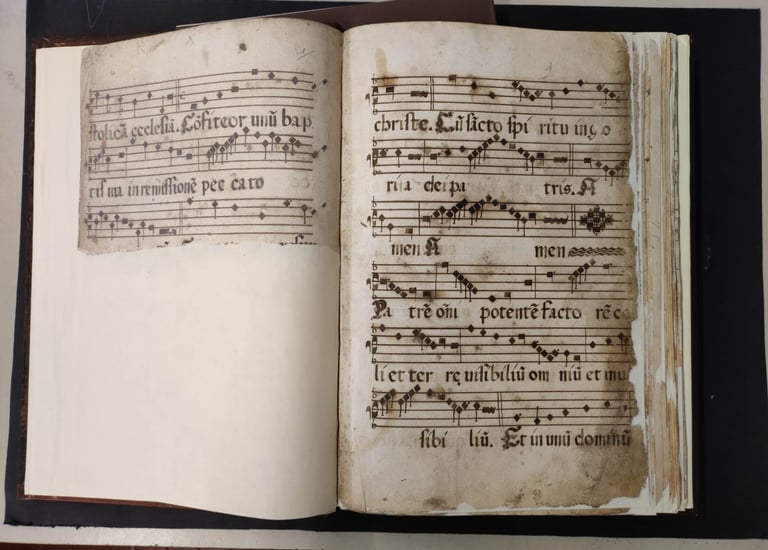 stolicã ecclesiã. Cõfiteor unũ bap
tis ma in remissionẽ pec cato
christe. Cũ sãcto spi ritu in glo
ria dei pa tris. A
men A men
Pa trẽ oĩm potentẽ facto rẽ c
li et ter rę uisibiliũ om niũ et inui
sibi liũ. Et in unũ dominũ